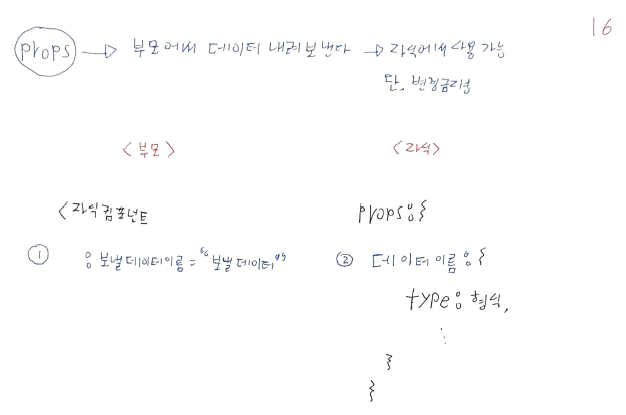 16
props → 부모에서 데이터 내려보낸다 → 자식에서 사용 가능
단, 변경금지성
<부모> <자식>
<자식컴포넌트 props:{
① :보낼데이터이름="보낼데이터" ② 데이터이름:{
type:형식,
⋮
}
}